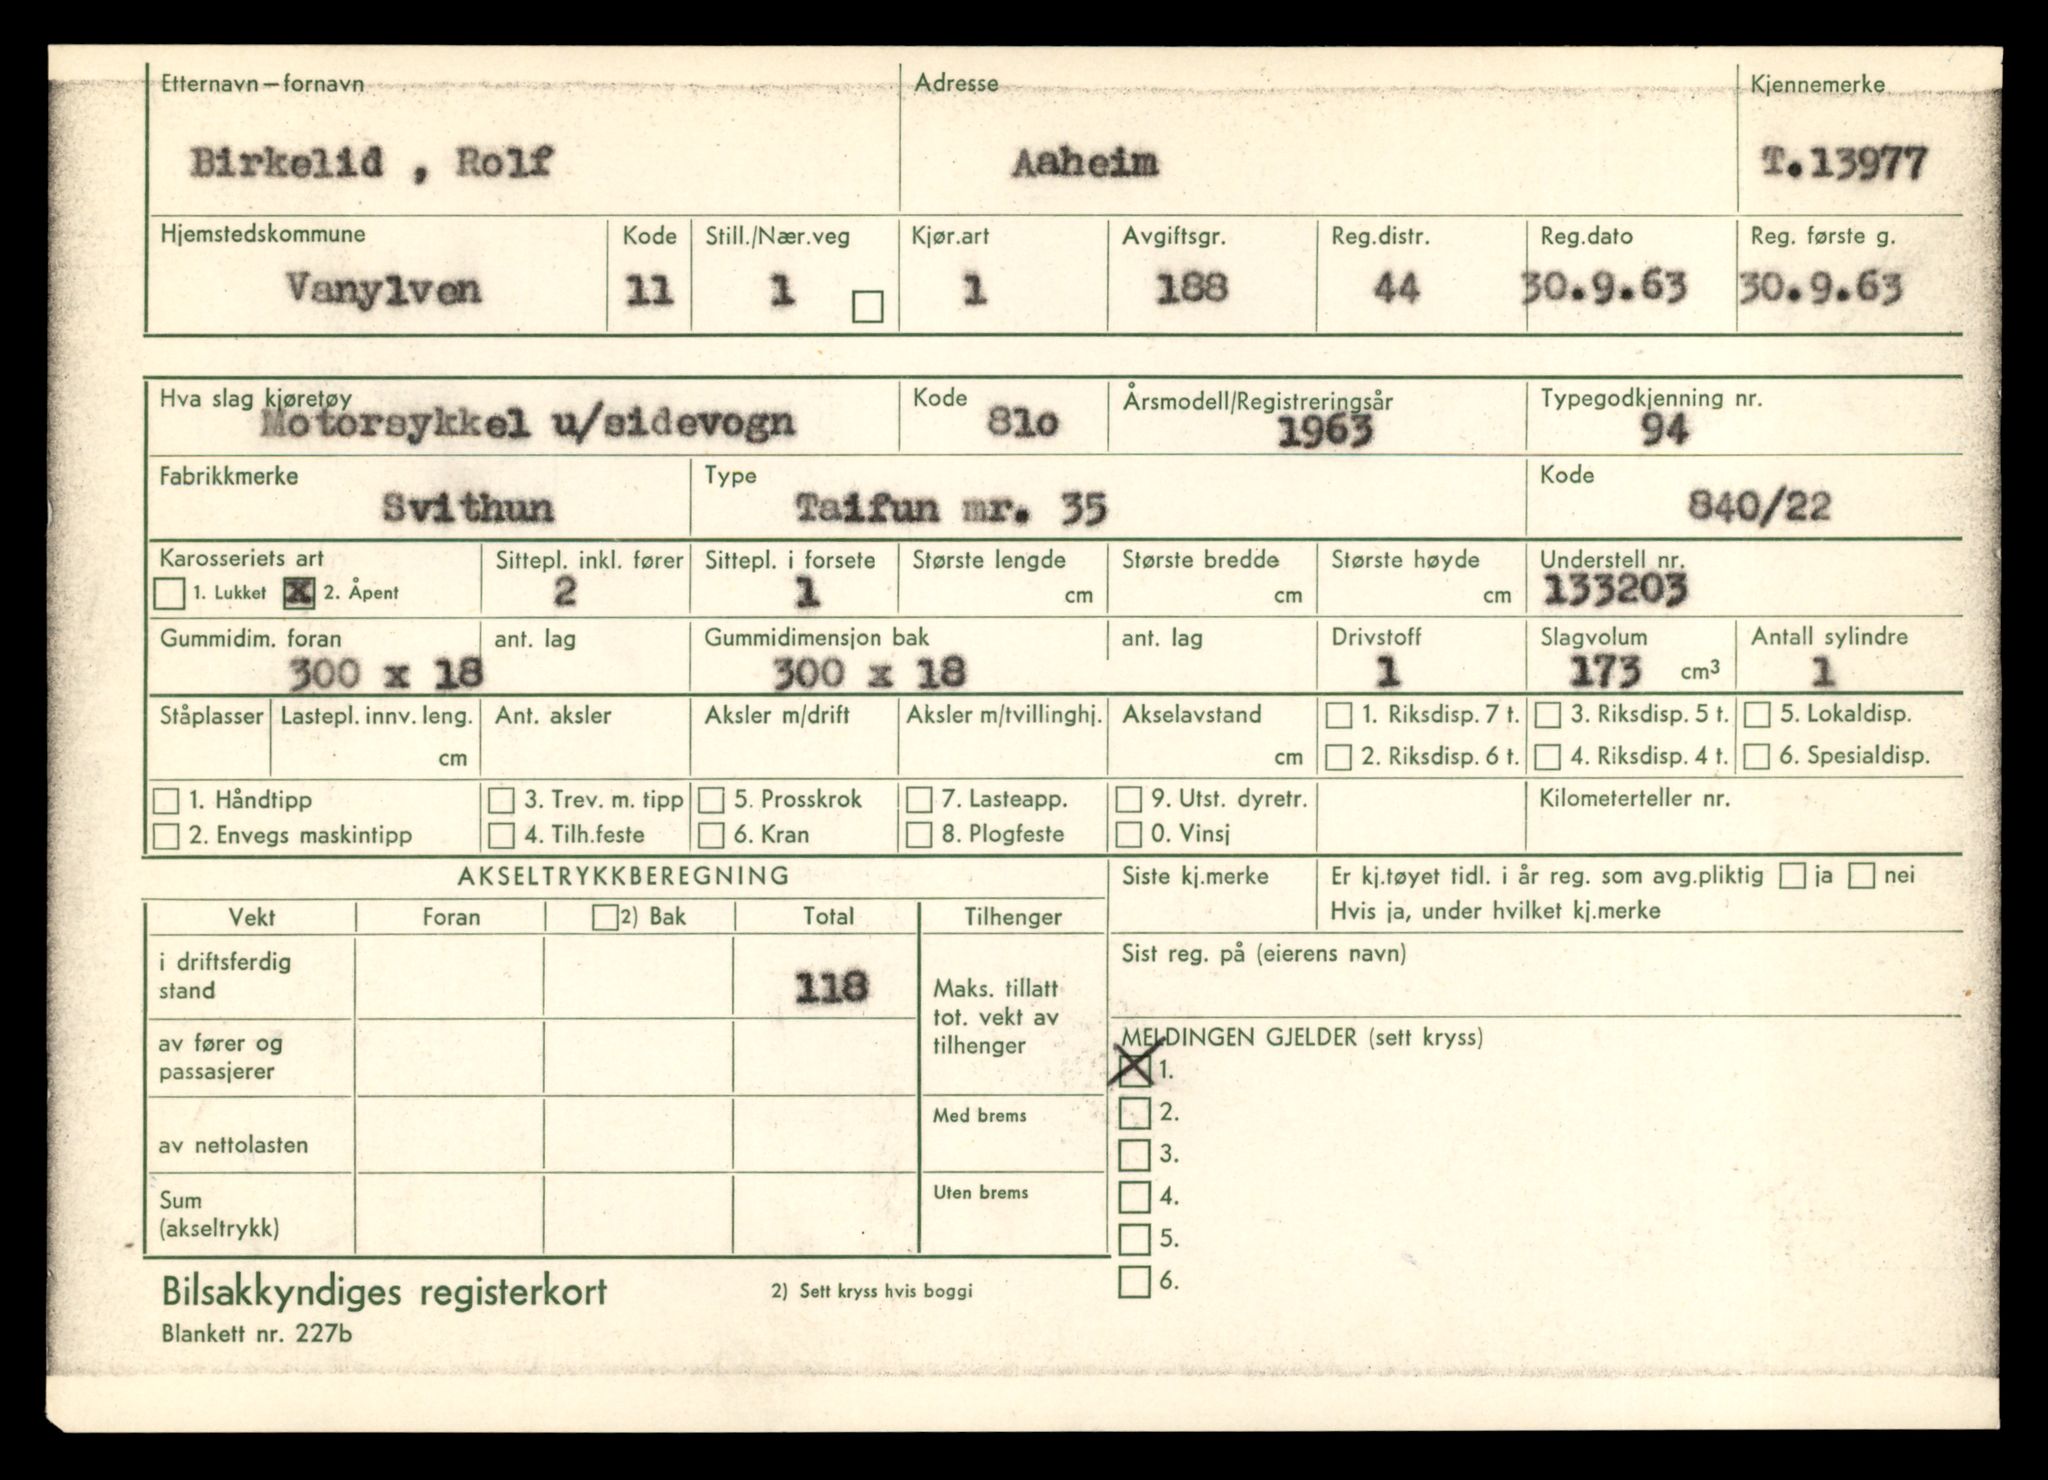 Etternavn—fornavn Adresse Kjennemerke
Birkelid , Rolf Aaheim T.13977
Hjemstedskommune Kode Still./Nær.veg Kjør.art Avgiftsgr. Reg.distr. Reg.dato Reg. første g.
Vanylven 11 1 1 188 44 30.9.63 30.9.63
Hva slag kjøretøy Kode Årsmodell/Registreringsår Typegodkjenning nr.
Motorsykkel u/sidevogn 81o 1963 94
Fabrikkmerke Type Kode
Svithun Taifun mr. 35 840/22
Karosseriets art Sittepl. inkl. fører Sittepl. i forsete Største lengde Største bredde Største høyde Understell nr.
1. Lukket X 2. Åpent 2 1 cm cm cm 133203
Gummidim. foran ant. lag Gummidimensjon bak ant. lag Drivstoff Slagvolum Antall sylindre
300 x 18 300 x 18 1 173 cm³ 1
Ståplasser Lastepl. innv. leng. Ant. aksler Aksler m/drift Aksler m/tvillinghj. Akselavstand 1. Riksdisp. 7 t. 3. Riksdisp. 5 t. 5. Lokaldisp.
cm cm 2. Riksdisp. 6 t. 4. Riksdisp. 4 t. 6. Spesialdisp.
1. Håndtipp 3. Trev. m. tipp 5. Prosskrok 7. Lasteapp. 9. Utst. dyretr. Kilometerteller nr.
2. Envegs maskintipp 4. Tilh.feste 6. Kran 8. Plogfeste 0. Vinsj
AKSELTRYKKBEREGNING Siste kj.merke Er kj.tøyet tidl. i år reg. som avg.pliktig ja nei
Vekt Foran 2) Bak Total Tilhenger Hvis ja, under hvilket kj.merke
i driftsferdig Sist reg. på (eierens navn)
stand 118 Maks. tillatt
tot. vekt av
av fører og tilhenger MELDINGEN GJELDER (sett kryss)
passasjerer X 1.
Med brems 2.
av nettolasten 3.
Sum Uten brems 4.
(akseltrykk) 5.
Bilsakkyndiges registerkort 2) Sett kryss hvis boggi 6.
Blankett nr. 227b